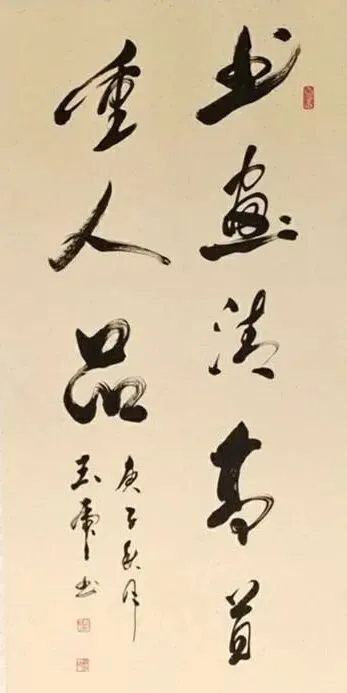 书画清高首
重人品
庚子秋月
玉虎书